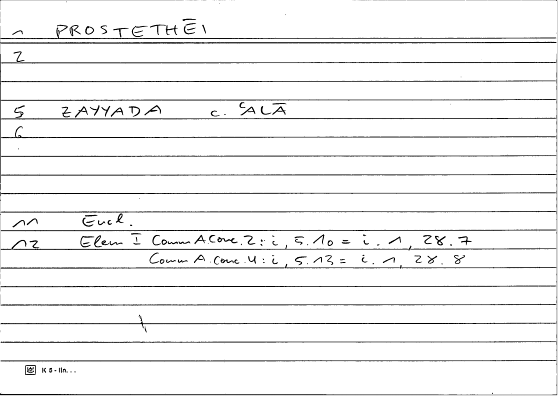 1 PROSTETHĒI
2
5 ZAYYADA c. ʿALĀ
6
11 Eucl.
12 Elem I Comm A.Conc. 2: i, 5.10 = i. 1, 28.7
Comm A. Conc. 4: i, 5.13 = i. 1, 28.8